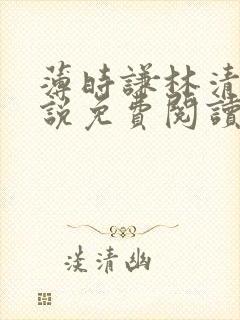 薄時謙林清
說免費閱讀
淡清幽